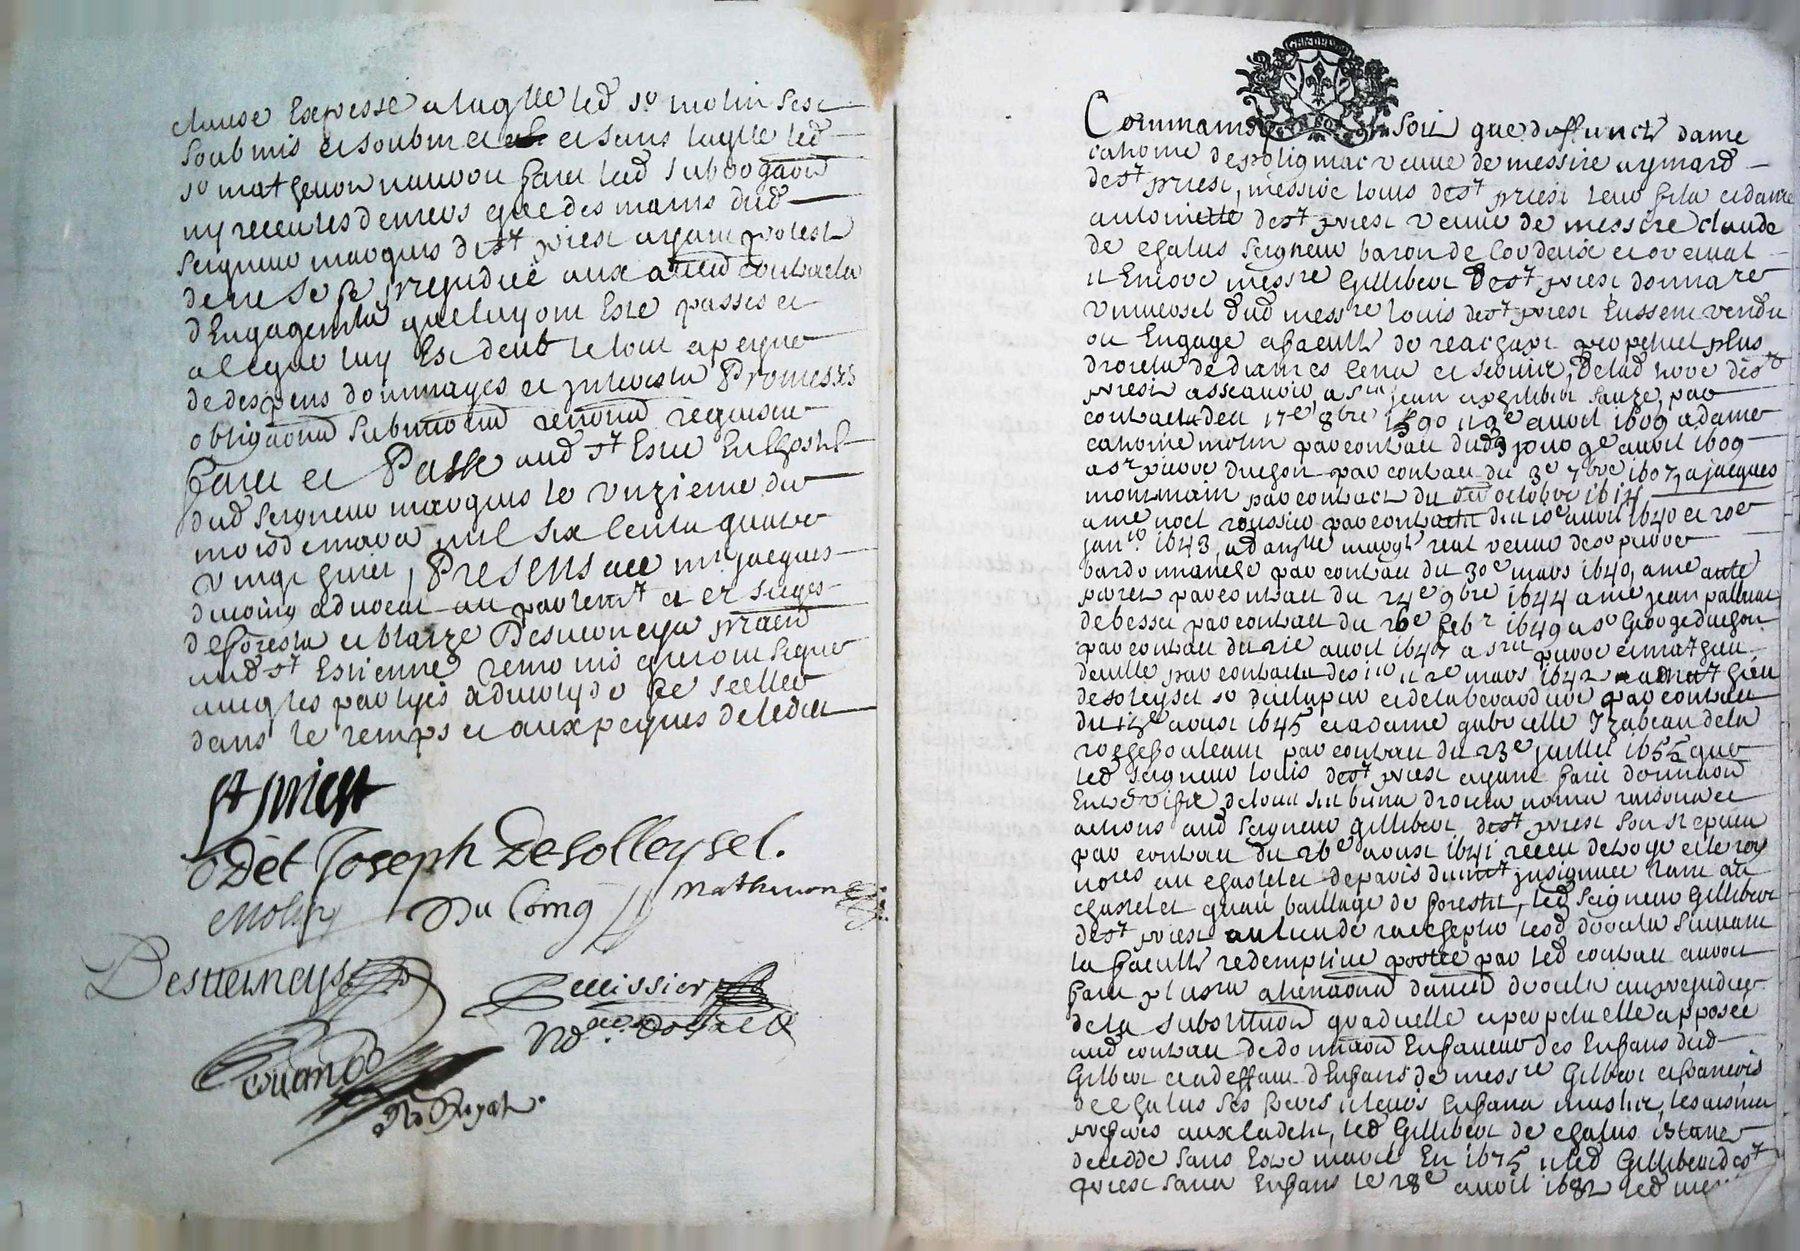 clause Expresse a laqlle led sr molin sest
soubmis et soubmet et sans laqlle led
sr mathevon nauroit faict lad subrogaon
ny receu lesd deniers que des mains dud
seigneur marquis de st priest ayant protesté
de ne se prejudicé aux autres contracts
d'Engagemts queluy ont Esté passés et
a ce que luy Est deub le tout a peyne
de despens dommages et Interests Promesses
obligaons submiōns renōns requises
faict et Passé aud st Estne En lhostel
dud seigneur marquis le unzieme du
mois de mars mil six cents quatre
vingt huict, Presens me mr Jacques
ducoing advocat au parlemt et ez sieges
de forests et blaize Desverneys praticn
aud st Estienne temoins qui ont signé
avec les partyes advertyes de se seeller
dans le temps et aux peynes de ledict
st priest
Odet Joseph DeSolleysel.
Molin Du Coing Mathevon
Desverneys
Pellissier
Nore Royal
Nore Royal.
GEN. DE LYON
Comme ainsy soit que deffuncte dame
catherine de Polignac veuve de messire aymard
de st priest, messire louis de st priest leur fils et dame
antoinette de st priest veuve de messire claude
de chalus seigneur baron de Cordesse et orcival
et Encore messire Gillibert de st priest donnare
universel dud messre louis de st priest Eussent vendu
ou Engagé a faculté de reachapt perpetuel plusrs
droicts de dixmes cens et servis, de lad terre de st
priest asseavoir a srs jean et gillibert sauze, par
contracts des 17e 8bre 1590 et 9e avril 1609 a dame
catherine molin par contract dud jour 9e avril 1609
a sr pierre duchon par contract du 3e 7bre 1607, a jacques
montmain par contract du octobre 1614
a me noel roussier par contracts du 10e avril 1640 et 20e
janer 1643, a dam margte real veuve de sr pierre
bardonnanche par contract du 30e mars 1640, a me anth
paret par contract du 24e 9bre 1644 a me jean palluat
de besset par contract du 26e febr 1649 a sr George duchon
par contract du 21e avril 1647 a srs pierre et mathieu
deville par contracts des 1er et 2e mars 1642 a mathieu
desoleysel sr du clapier et de la berardiere par contract
du 13e aoust 1645 et a dame gabrielle Izabeau de la
rochefoucault par contract du 23e juillet 1655 que
led seigneur louis de st priest ayant faict donnaon
Entre vifs de tous ses biens droicts noms raisons et
actions aud seigneur gillibert de st priest son nepveu
par contract du 26e aoust 1641 receu deloge et leroy
nores au chastelet de paris dumt insignuee tant au
chastelet qu'au bailliage de forests, led seigneur Gillibert
de st priest au lieu de rachepter lesd droicts suivant
la faculté redemptive portée par led contract auroit
faict plusrs alienaons dautres droicts au prejudice
de la substituōn graduelle et perpetuelle apposée
aud contract de donnaon En faveur des Enfans dud
Gilbert et a deffaut d'Enfans de messre Gilbert et francois
de chalus ses freres et leurs Enfans masles, les aisnés
preferés aux cadets, led Gillibert de chalus Estant
decedé sans Estre marié En 1675 et led Gillibert de st
priest sans Enfans le 28e avril 1682 led me